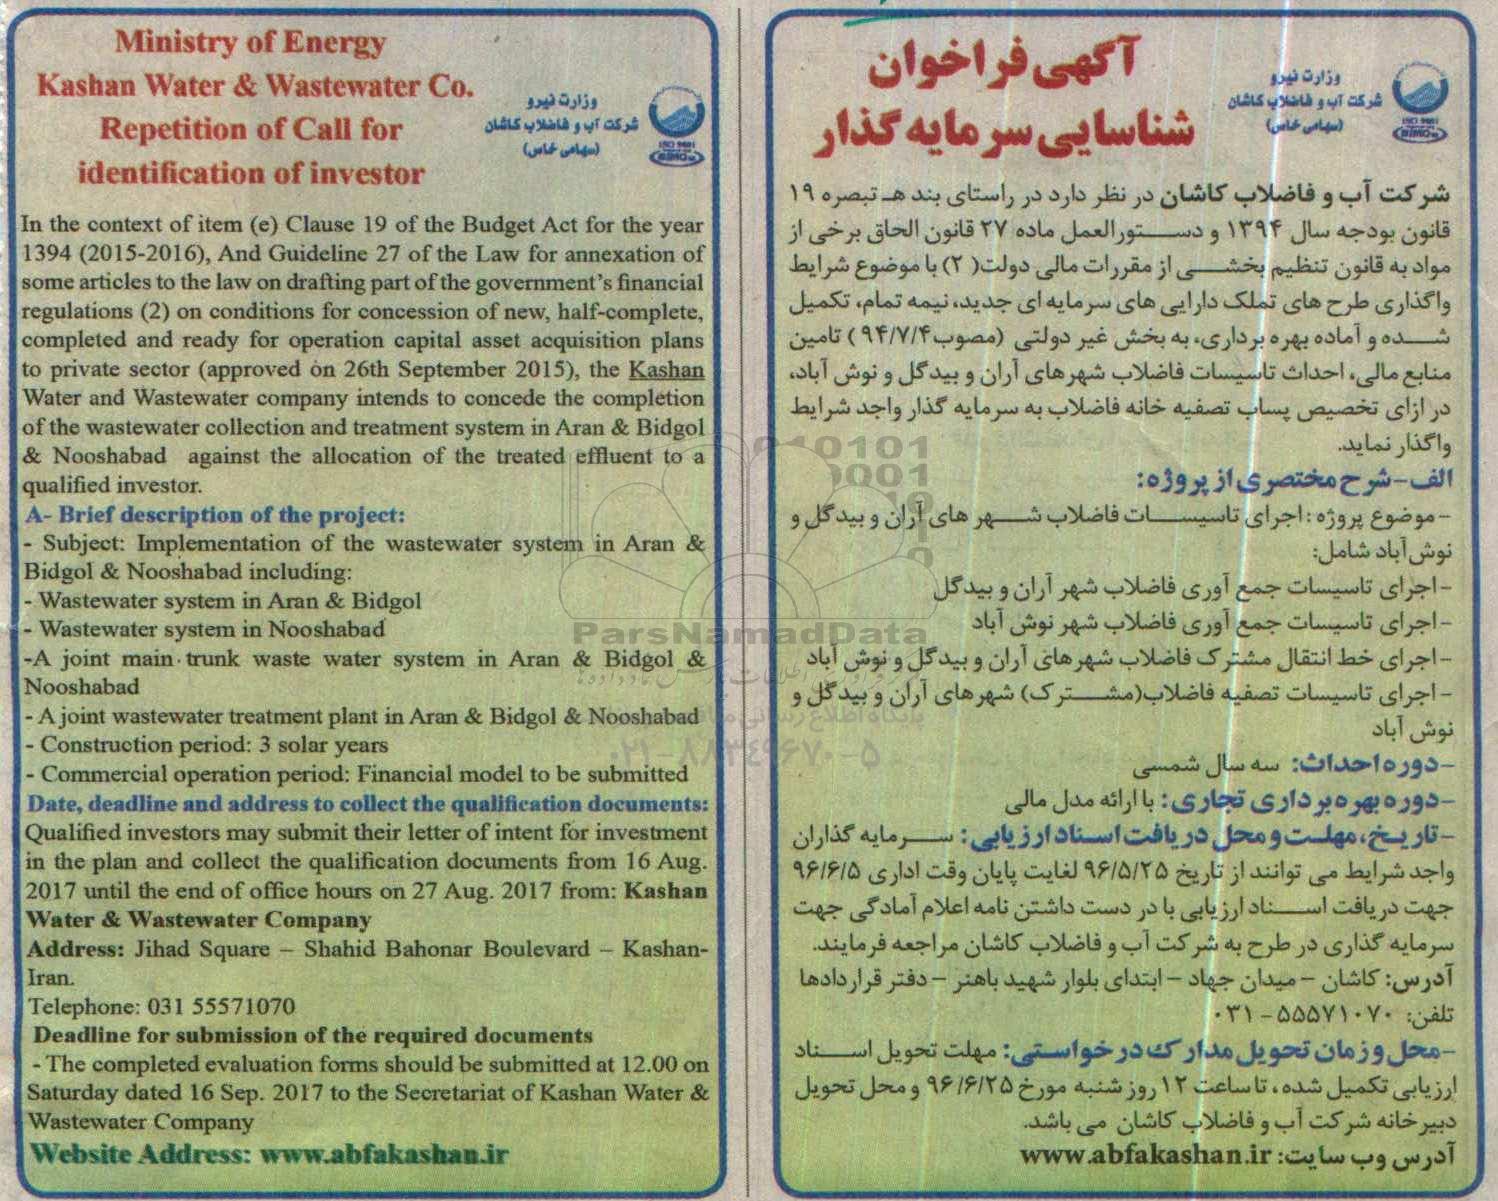 Ministry of Energy
Kashan Water & Wastewater Co.
Repetition of Call for
identification of investor
وزارت نیرو
شرکت آب و فاضلاب کاشان
(سهامی خاص)
ISO 9001
In the context of item (e) Clause 19 of the Budget Act for the year
1394 (2015-2016), And Guideline 27 of the Law for annexation of
some articles to the law on drafting part of the government's financial
regulations (2) on conditions for concession of new, half-complete,
completed and ready for operation capital asset acquisition plans
to private sector (approved on 26th September 2015), the Kashan
Water and Wastewater company intends to concede the completion
of the wastewater collection and treatment system in Aran & Bidgol
& Nooshabad against the allocation of the treated effluent to a
qualified investor.
A- Brief description of the project:
- Subject: Implementation of the wastewater system in Aran &
Bidgol & Nooshabad including:
- Wastewater system in Aran & Bidgol
- Wastewater system in Nooshabad
-A joint main trunk waste water system in Aran & Bidgol &
Nooshabad
- A joint wastewater treatment plant in Aran & Bidgol & Nooshabad
- Construction period: 3 solar years
- Commercial operation period: Financial model to be submitted
Date, deadline and address to collect the qualification documents:
Qualified investors may submit their letter of intent for investment
in the plan and collect the qualification documents from 16 Aug.
2017 until the end of office hours on 27 Aug. 2017 from: Kashan
Water & Wastewater Company
Address: Jihad Square – Shahid Bahonar Boulevard – Kashan-
Iran.
Telephone: 031 55571070
Deadline for submission of the required documents
- The completed evaluation forms should be submitted at 12.00 on
Saturday dated 16 Sep. 2017 to the Secretariat of Kashan Water &
Wastewater Company
Website Address: www.abfakashan.ir
آگهی فراخوان
شناسایی سرمایه گذار
وزارت نیرو
شرکت آب و فاضلاب کاشان
(سهامی خاص)
ISO 9001
شرکت آب و فاضلاب کاشان در نظر دارد در راستای بند هـ تبصره ۱۹
قانون بودجه سال ۱۳۹۴ و دستورالعمل ماده ۲۷ قانون الحاق برخی از
مواد به قانون تنظیم بخشی از مقررات مالی دولت( ۲) با موضوع شرایط
واگذاری طرح های تملک دارایی های سرمایه ای جدید، نیمه تمام، تکمیل
شده و آماده بهره برداری، به بخش غیر دولتی (مصوب۹۴/۷/۴ ) تامین
منابع مالی، احداث تاسیسات فاضلاب شهرهای آران و بیدگل و نوش آباد،
در ازای تخصیص پساب تصفیه خانه فاضلاب به سرمایه گذار واجد شرایط
واگذار نماید.
الف-شرح مختصری از پروژه:
- موضوع پروژه : اجرای تاسیسات فاضلاب شهر های آران و بیدگل و
نوش آباد شامل:
- اجرای تاسیسات جمع آوری فاضلاب شهر آران و بیدگل
- اجرای تاسیسات جمع آوری فاضلاب شهر نوش آباد
- اجرای خط انتقال مشترک فاضلاب شهرهای آران و بیدگل و نوش آباد
- اجرای تاسیسات تصفیه فاضلاب(مشترک) شهرهای آران و بیدگل و
نوش آباد
-دوره احداث: سه سال شمسی
-دوره بهره برداری تجاری: با ارائه مدل مالی
-تاریخ، مهلت و محل دریافت اسناد ارزیابی: سرمایه گذاران
واجد شرایط می توانند از تاریخ ۹۶/۵/۲۵ لغایت پایان وقت اداری ۹۶/۶/۵
جهت دریافت اسناد ارزیابی با در دست داشتن نامه اعلام آمادگی جهت
سرمایه گذاری در طرح به شرکت آب و فاضلاب کاشان مراجعه فرمایند.
آدرس: کاشان – میدان جهاد – ابتدای بلوار شهید باهنر – دفتر قراردادها
تلفن: ۵۵۵۷۱۰۷۰ - ۰۳۱
-محل و زمان تحویل مدارک درخواستی: مهلت تحویل اسناد
ارزیابی تکمیل شده، تا ساعت ۱۲ روز شنبه مورخ ۹۶/۶/۲۵ و محل تحویل
دبیرخانه شرکت آب و فاضلاب کاشان می باشد.
آدرس وب سایت: www.abfakashan.ir
ParsNamadData
۰۲۱-۸۸۳۴۹۶۷۰-۵